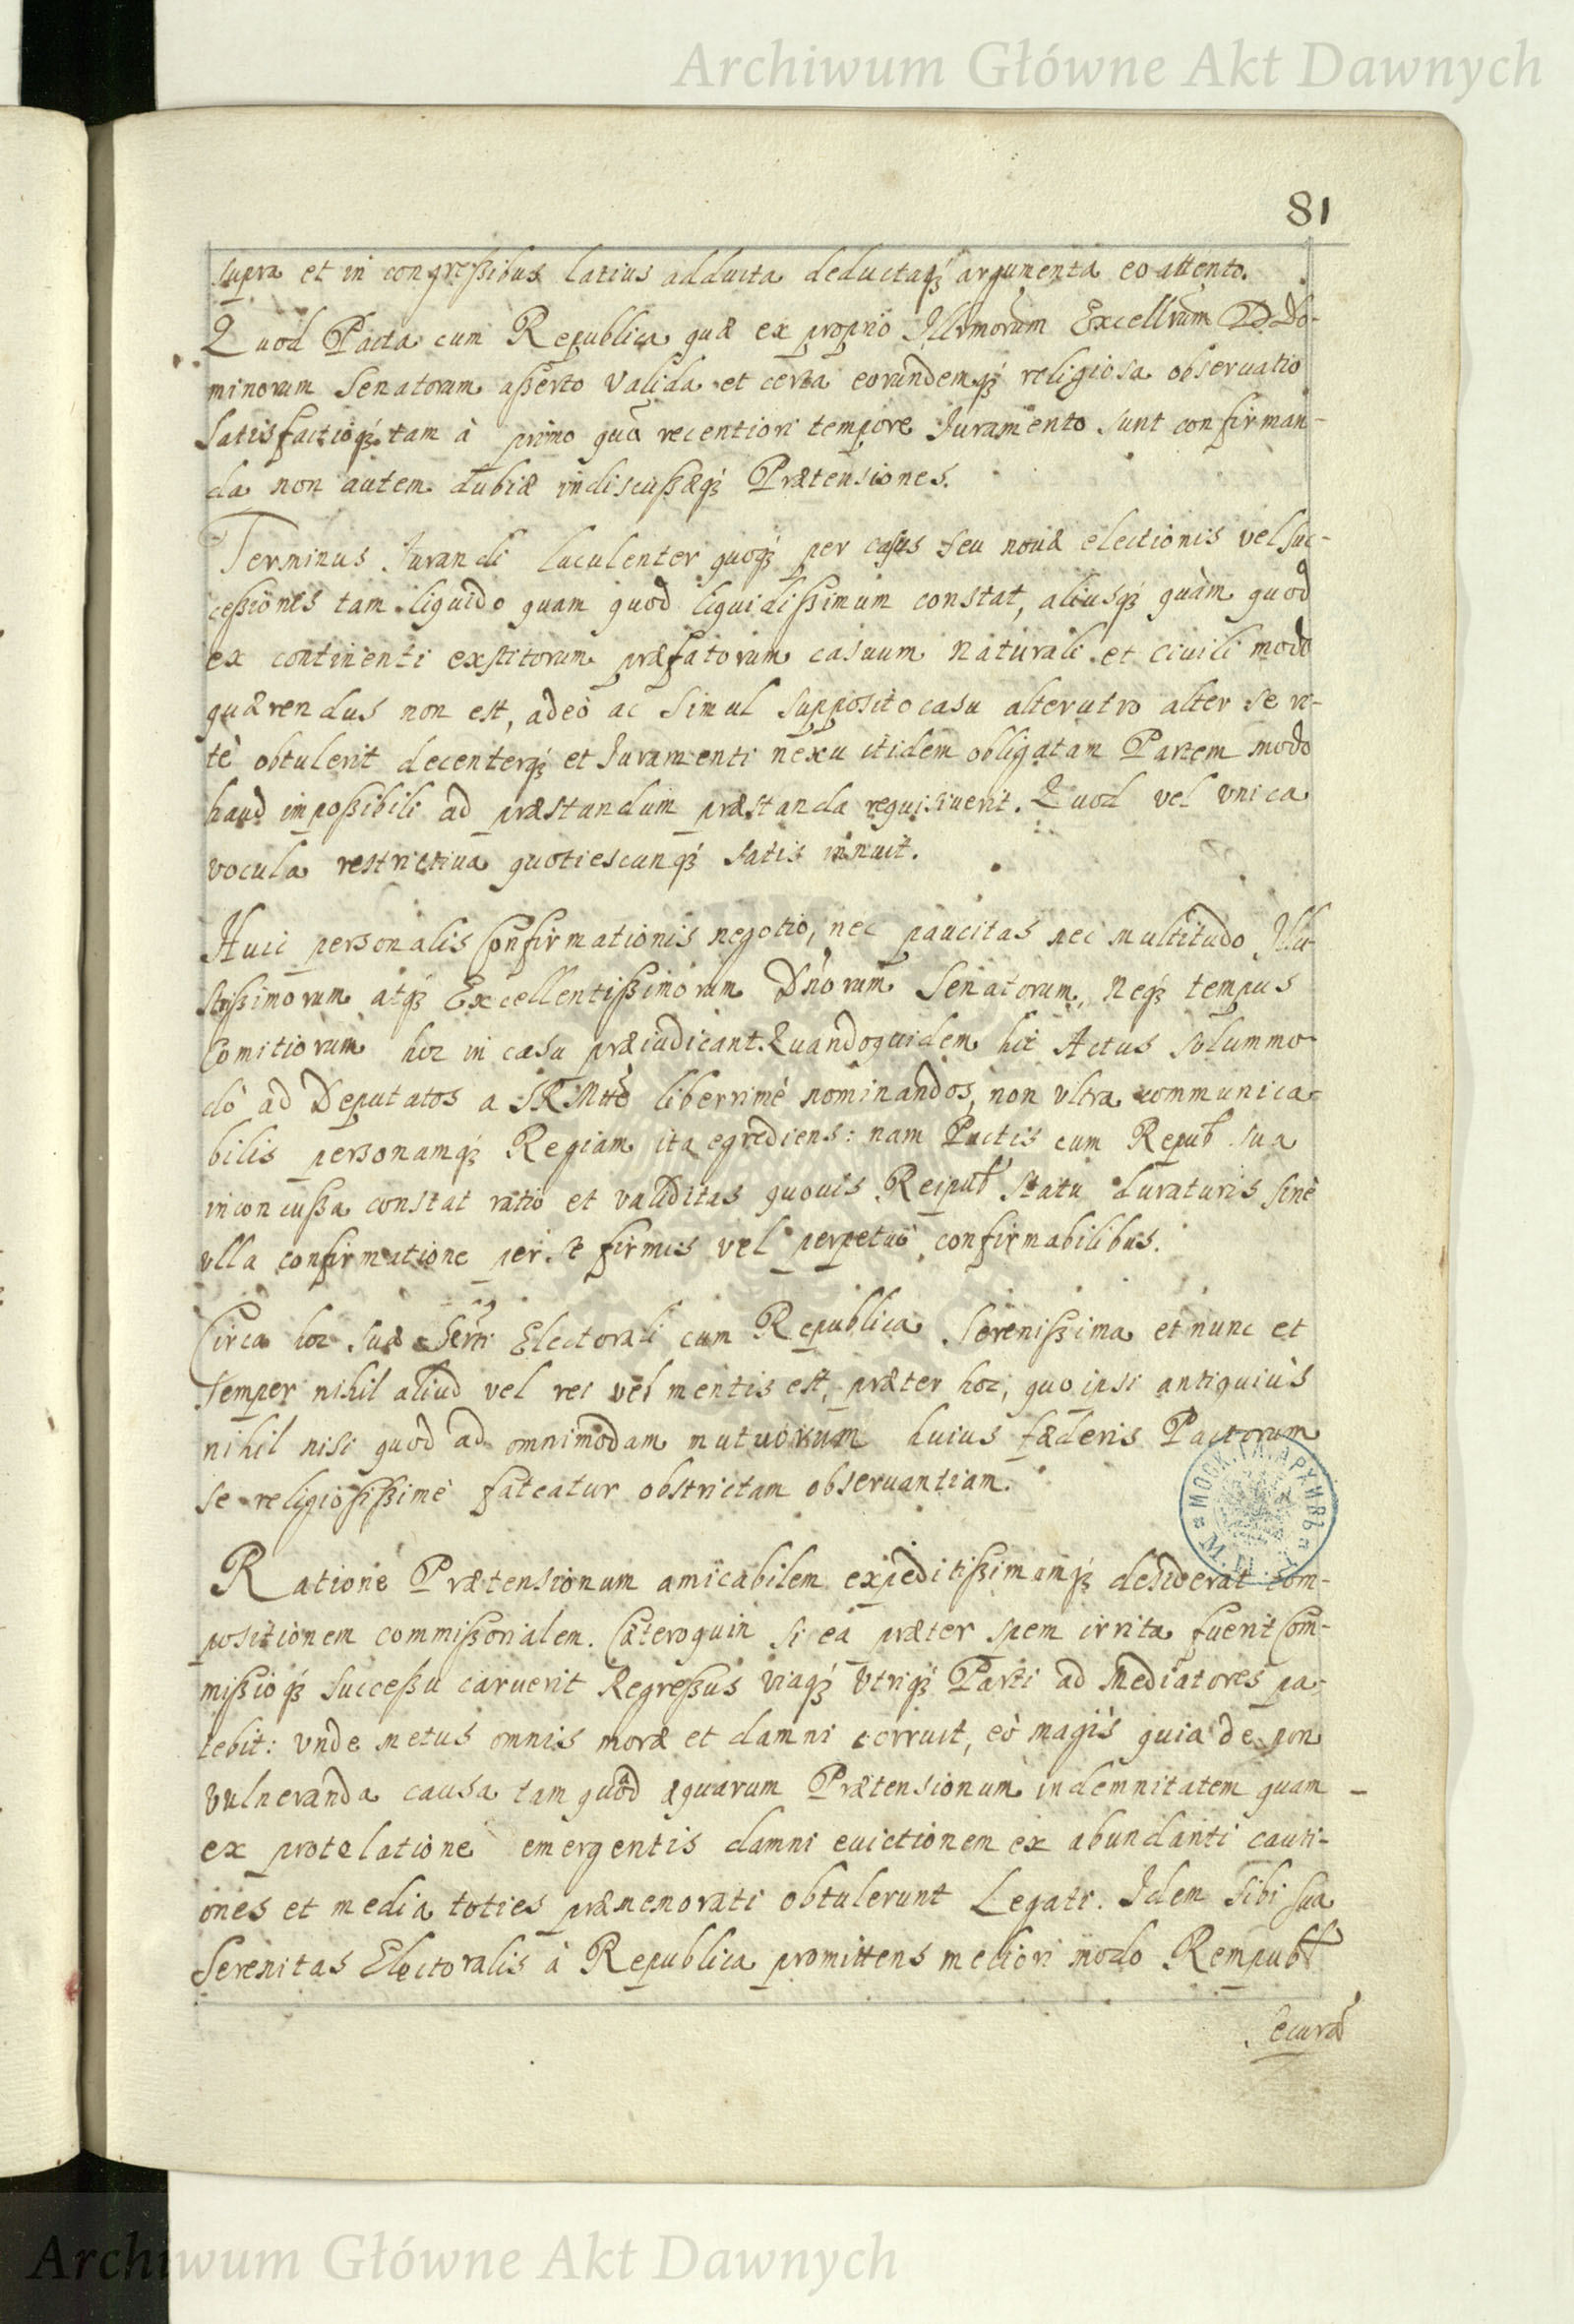 Archiwum Główne Akt Dawnych
81
supra et in congreßibus latius adducta deductaqꝫ argumenta eo attento.
Quod Pacta cum Republica quæ ex proprio Illrmorum Excellrum DD Do-
minorum Senatorum aßerto valida et certa eorundemqꝫ religiosa obseruatio
satisfactioqꝫ tam à primo quā recentiori tempore Iuramento sunt confirman-
da non autem dubiæ indiscußæqꝫ Prætensiones.
Terminus Iurandi luculenter quoqꝫ per casus seu nouæ electionis vel suc-
ceßionis tam liquido quam quod liquidißimum constat, aliusqꝫ quàm quod
ex continenti exstitorum præfatorum casuum naturali et ciuili modo
quærendus non est, adeò ac simul supposito casu alterutro alter se ri-
tè obtulerit decenterqꝫ et Iuramenti nexu itidem obligatam Partem modo
haud impoßibili ad præstandum præstanda requisiuerit. Quod vel vnica
vocula restrictiua quotiescunqꝫ satis innuit.
Huic personalis Confirmationis negotio, nec paucitas nec multitudo Illu-
strißimorum atqꝫ Excellentißimorum Dnorum Senatorum, neqꝫ tempus
Comitiorum hoc in casu præiudicant. Quandoquidem hic Actus solummo-
dò ad Deputatos a SRMtte liberrimè nominandos, non vltra communica-
bilis personamqꝫ Regiam ita egrediens: nam Pactis cum Repub sua
inconcußa constat ratio et validitas quouis Reipub statu duraturis sine
vlla confirmatione per se firmis vel perpetuò confirmabilibus.
Circa hoc suæ Serti Electorali cum Republica Serenißima et nunc et
semper nihil aliud vel rei vel mentis est, præter hoc, quo ipsi antiquiùs
nihil nisi quod ad omnimodam mutuorum huius fæderis Pactorum
se religiosißimè fateatur obstrictam obseruantiam.
МОСК. ГЛ. АРХИВЪ
Ratione Prætensionum amicabilem expeditißimamqꝫ desiderat com-
positionem commißorialem. Cæteroquin si ea præter spem irrita fuerit Com-
mißioqꝫ succeßu caruerit Regreßus viaqꝫ vtriqꝫ Parti ad Mediatores pa-
tebit: vnde metus omnis moræ et damni corruit, eò magis quia de non
vulneranda causa tam quoad æquarum Prætensionum indemnitatem quam
ex protelatione emergentis damni euictionem ex abundanti cauti-
ones et media toties prænemorati obtulerunt Legati. Idem sibi sua
Serenitas Electoralis à Republica promittens meliori modo Rempub
Securā
Archiwum Główne Akt Dawnych